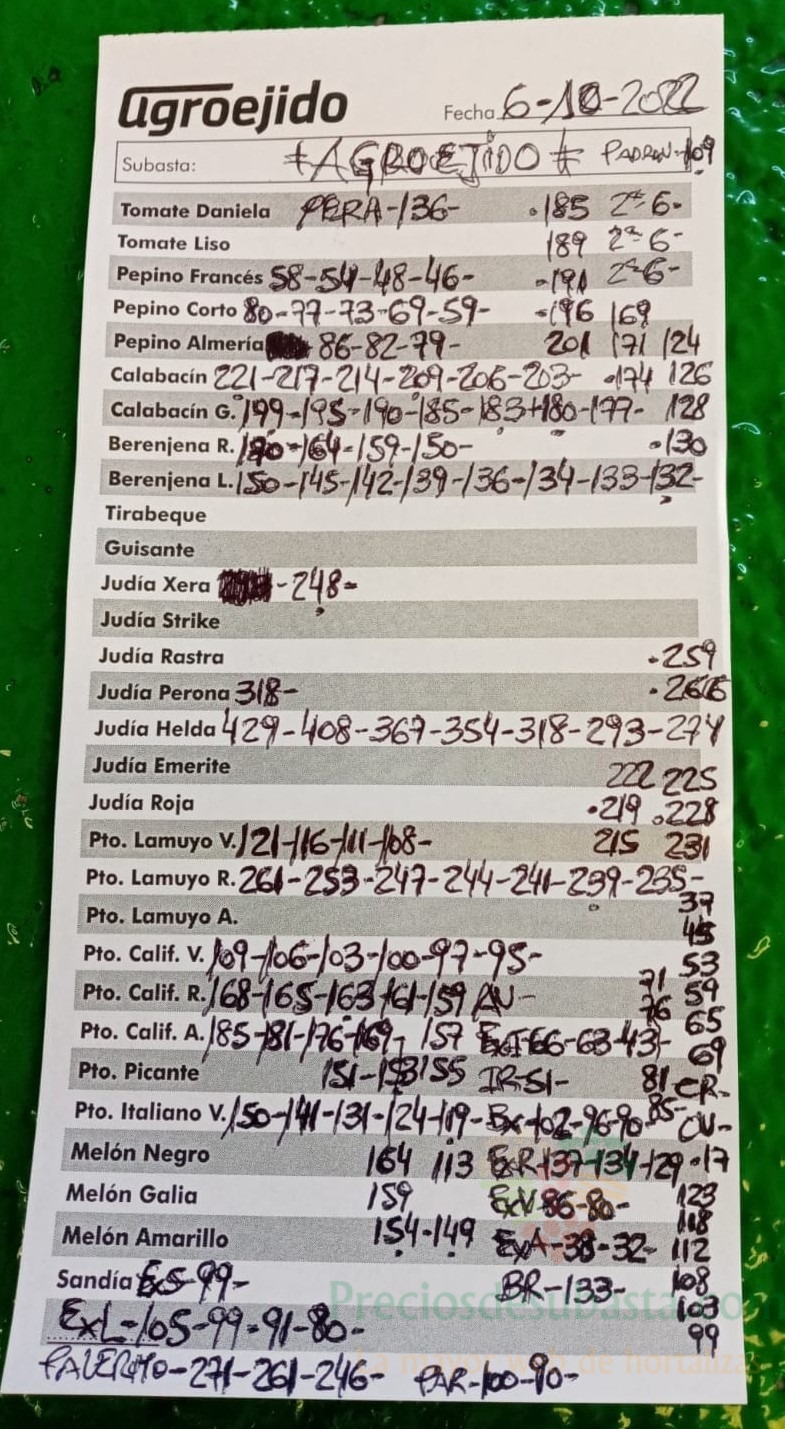 agroejido Fecha 6-10-2022
Subasta: #AGROEJIDO# PADRON-109
Tomate Daniela PERA-136- .185 2ª 6-
Tomate Liso 189 2ª 6-
Pepino Francés 58-54-48-46- -191 2ª 6-
Pepino Corto 80-77-73-69-59- -196 169
Pepino Almería 86-82-79- 201 171 124
Calabacín 221-217-214-209-206-203- .174 126
Calabacín G. 199-195-190-185-183+180-177- 128
Berenjena R. -164-159-150- .130
Berenjena L. 150-145-142-139-136-134-133-132-
Tirabeque
Guisante
Judía Xera -248-
Judía Strike
Judía Rastra .259
Judía Perona 318-
Judía Helda 429-408-367-354-318-293-274
Judía Emerite 222 225
Judía Roja .219 .228
Pto. Lamuyo V. 121-116-111-108- 215 231
Pto. Lamuyo R. 261-253-247-244-241-239-235-
37
Pto. Lamuyo A. 45
Pto. Calif. V. 109-106-103-100-97-95- 53
71
Pto. Calif. R. 168-165-163-161-159 AV- 76 59
65
Pto. Calif. A. 185-181-176-169- 157 ExI-66-63-43- 69
Pto. Picante 151-153 155 IR-51- 81 CR-
Pto. Italiano V. 150-141-131-124-119-Bx-102-96-90- 85- OV-
Melón Negro 164 113 ExR-137-134-129 .17
Melón Galia 159 ExV-86-80- 123
118
Melón Amarillo 154-149 ExA-38-32- 112
Sandía ExS-99- BR-133- 108
Preciosdesubasta.com
103
ExL-105-99-91-80- 99
La mayor web de hortalizas
PALERMO-271-261-246- PAR-100-90-